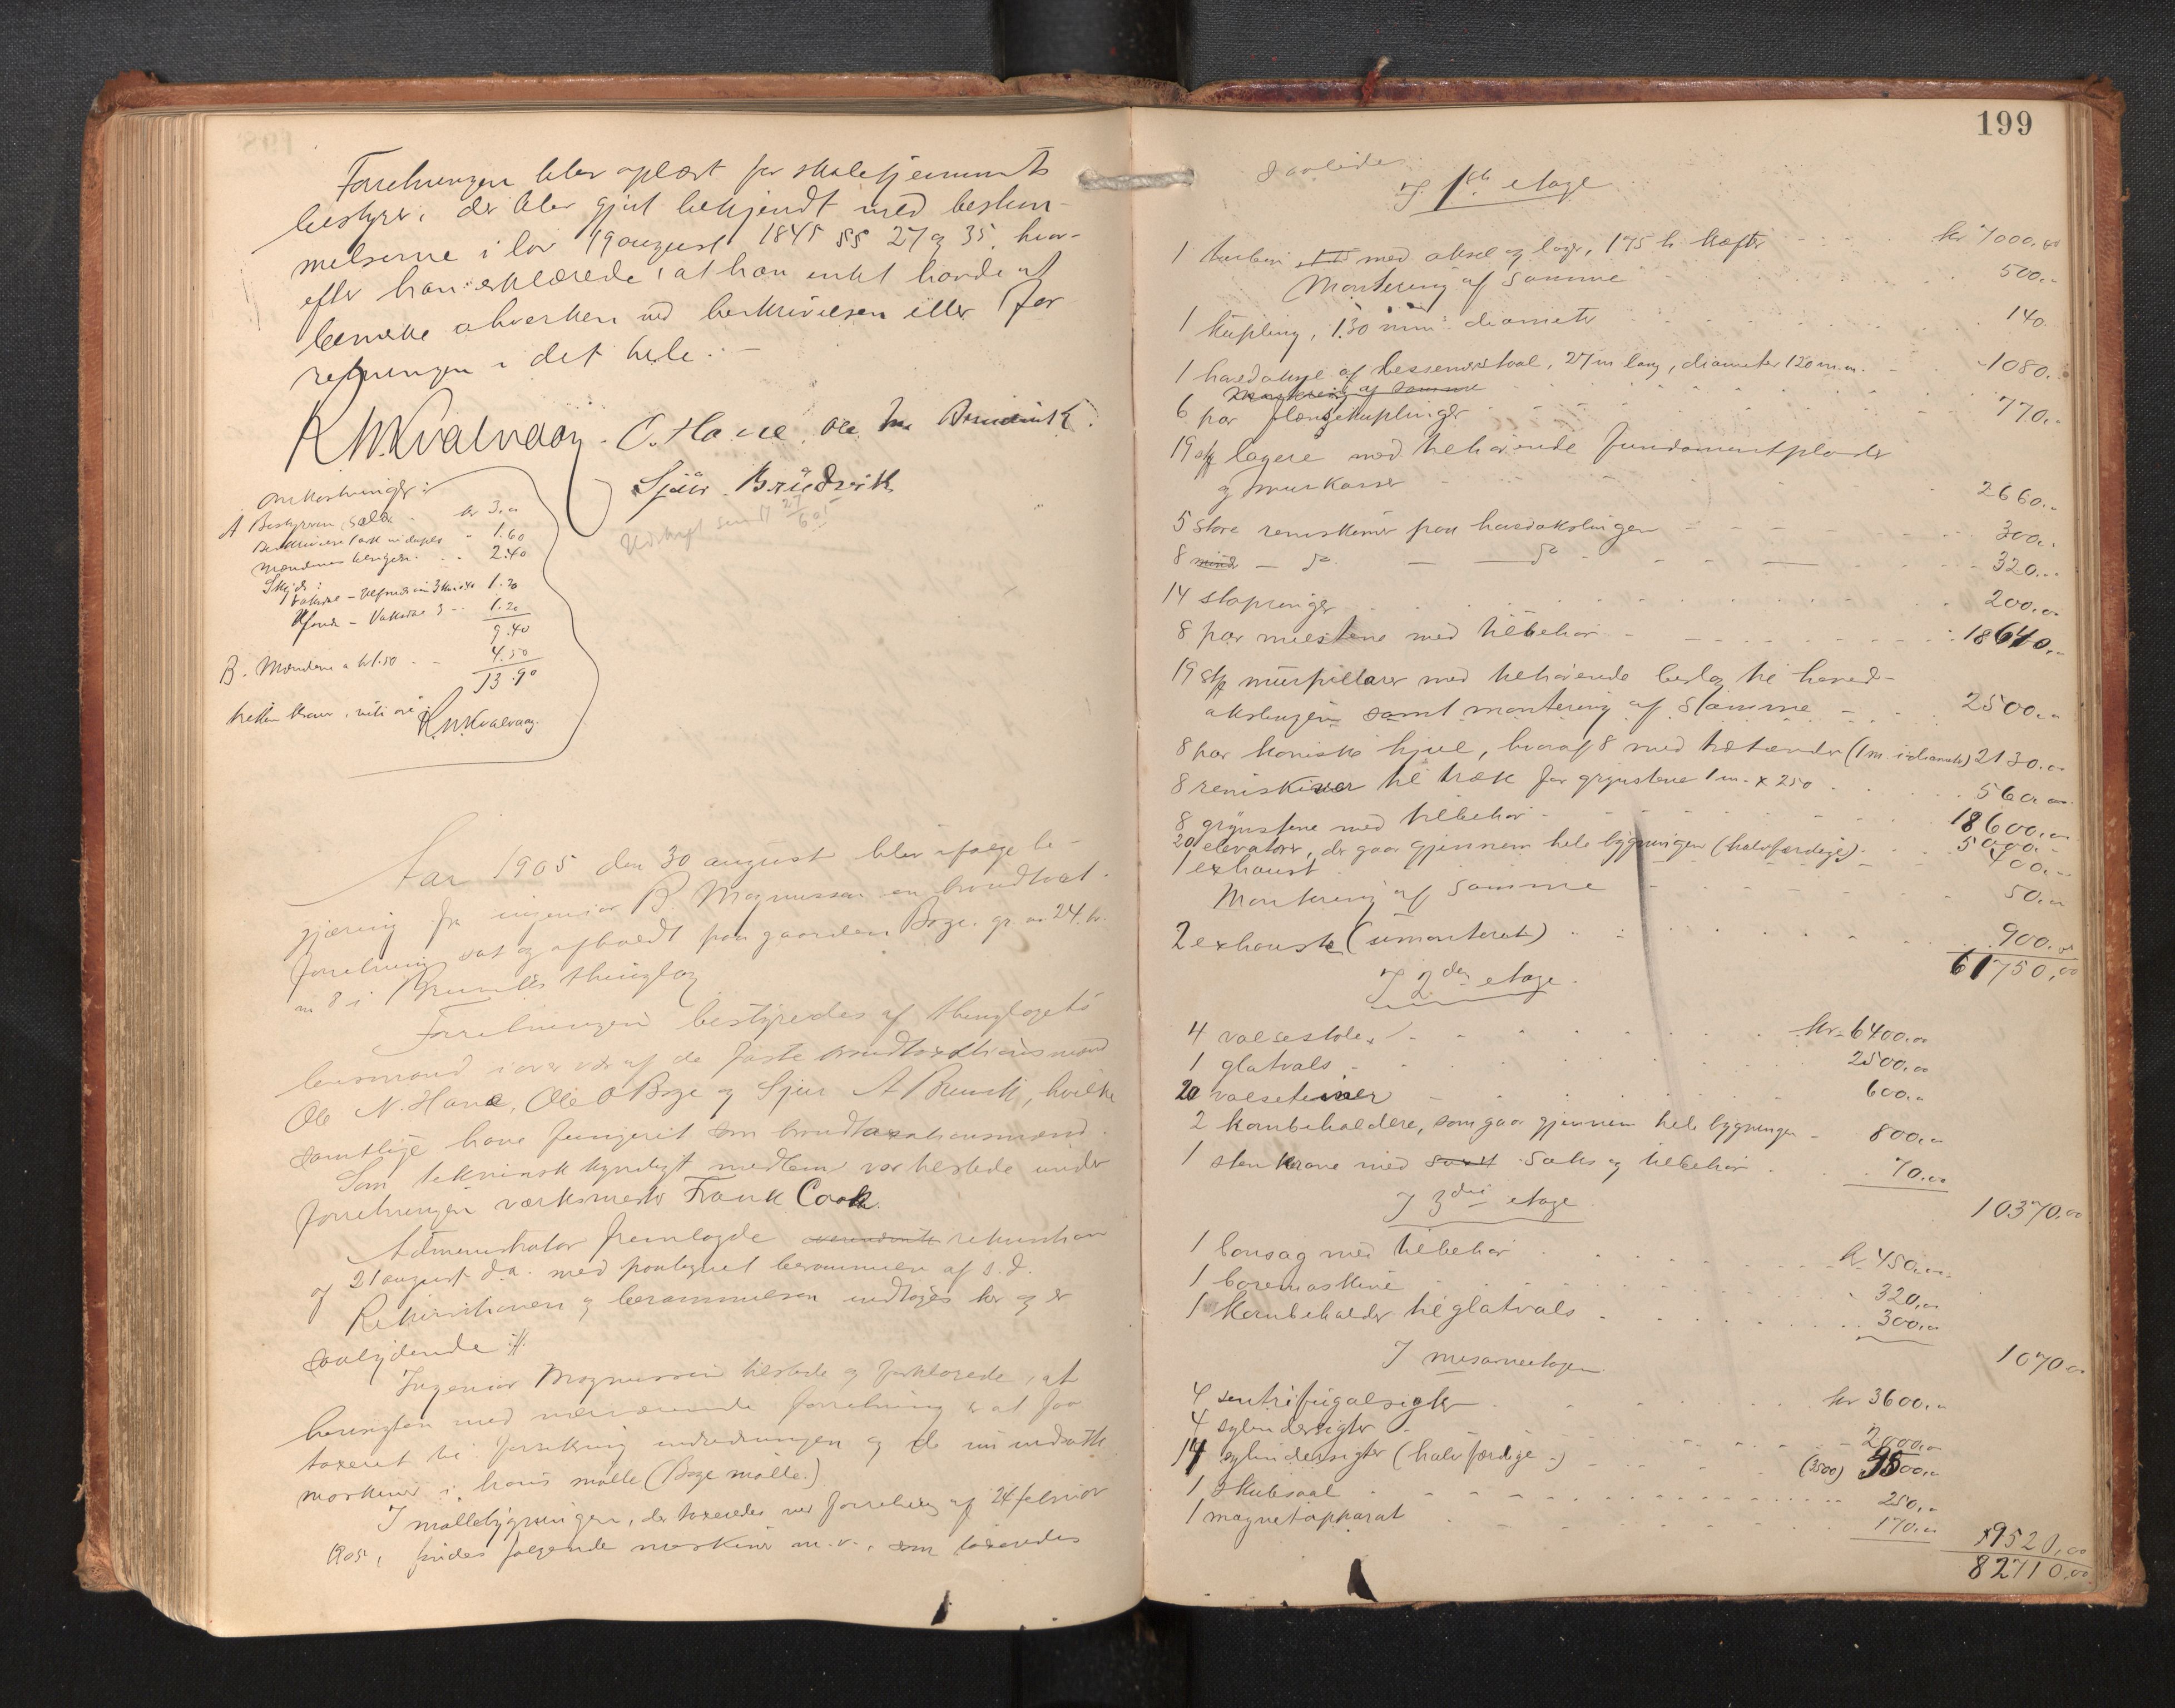 Forretningen blev oplæst for skolehjemmets
bestyrer, der blev gjort bekjendt med bestem-
melserne i lov 19 august 1845 §§ 27 og 35, hvor-
efter han erklærede, at han intet havde at
bemerke ahverken ved beskrivelsen eller for
retningen i det hele. —
R.M. Kvalvaag. O. Hane. Ole
Sjur Brudvik
Udskrift sendt 2/9 05
Omkostninger:
A Bestyreren, salær kr 3.00
1.60
Mændenes 2.40
Skyds:
1.20
Vaksdal 3 - 1.20
9.40
B. Mændene a kr 1.50 - 4.50
13.90
tretten kroner, niti øre.
R.M. Kvalvaag.
Aar 1905 den 30 august blev ifølge be-
gjæring fra ingeniør B. Magnussen en brandtaxt-
forretning sat og afholdt paa gaarden Boge, gr. no 24, br.
no 8 i Bruviks thinglag
Forretningen bestyredes af thinglagets
lensmand i overvær af de faste brandtaxtationsmænd
Ole N. Hane, Ole O Boge og Sjur A Bruvik, hvilke
samtlige have fungeret som brandtaxationsmænd.
Som teknisk kyndigt medlem var tilstede under
forretningen værksmester Frank Cook.
Administrator fremlagde rekvisition
af 21 august d.a. med paategnet berammelse af s.d.
Rekvisitionen og berammelsen indtages her og er
saalydende :/:
Ingeniør Magnussen tilstede og forklarede, at
hensigten med nærværende forretning er at faa
taxeret til forsikring indredningen og de nu indsatte
maskiner i hans mølle (Boge mølle.)
I møllebygningen, der taxeredes ved forretning af 24 februar
1905, findes følgende maskiner m.v., som taxeredes
199
saaledes
I 1ste etage
1 turbin med aksel og lager, 175 h. kræfter - - - kr 7000,00
Montering af samme 500,-
1 kupling, 130 mm: diameter 140.
1 hovedaksel af bessemerstaal, 27 m lang, diameter 120 m.m. - 1080,-
Montering af samme
6 par flangekuplinger 770,-
19 stk lagere med tilhørende fundamentplader
og murkasser 2660,-
5 store remskiver paa hovedakslingen 300,-
8 mind — do — do 320,-
14 stopringer 200,00
8 par møllestene med tilbehør 18640,-
19 stk murpillarer med tilhørende beslag til hoved-
akslingen samt montering af samme 2500,00
8 par koniske hjul, hvoraf 8 med trætænder (1 m. i diameter) 2130.00
8 remskiver til træk for grynstene 1 m. x 250 560,00
8 grynstene med tilbehør 18600,00
20 elevatorer, der gaar gjennem hele bygningen (halvfærdige) 5000,-
1 exhaust 400,-
Montering af samme 50,00
2 exhauste (umonterete) 900.00
61750,00
I 2den etage.
4 valsestole kr. 6400,00
1 glatvals 2500,00
20 600,00
2 kornbeholdere, som gaar gjennem hele bygningen - 800,00
1 stenkrane med saks og tilbehør 70,00
10370,00
I 3die etage
1 baansag med tilbehør kr 450,00
1 boremaskine 320,00
1 kornbeholder til glatvals 300,00
1070,00
I mesanetagen
4 sentrifugalsigter kr 3600,00
4 sylindersigter 2000,00
14 sylindersigter (halvfærdige) (3500) 3500,00
1 250,00
1 magnetapparat 170,00
9520,00
82710,00